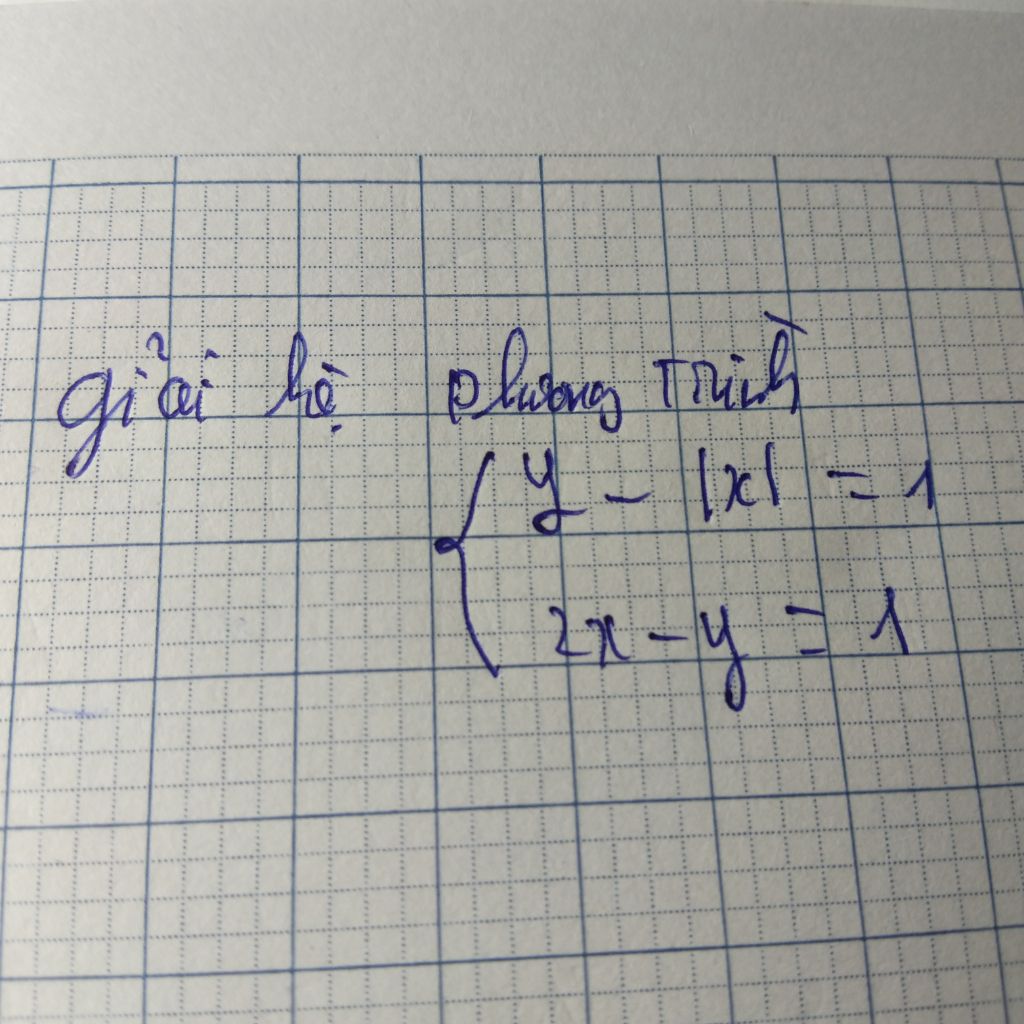 giải hệ phương trình
{ y - |x| = 1
2x - y = 1